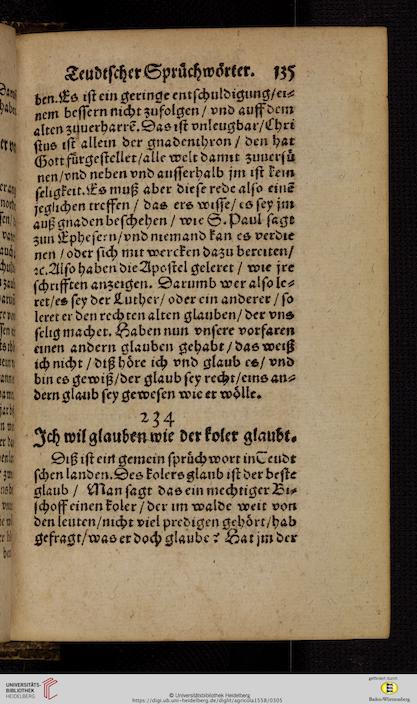 Teudtscher Sprüchwörter. 135
ben. Es ist ein geringe entschuldigung/ ei-
nem bessern nicht zufolgen / vnd auff dem
alten zuuerharrē. Das ist vnleugbar/ Chri
stus ist allein der gnadenthron / den hat
Gott fürgestellet/ alle welt damit zuuersü
nen/ vnd neben vnd ausserhalb jm ist kein
seligkeit. Es muß aber diese rede also einē
jeglichen treffen / das ers wisse/ es sey jm
auß gnaden beschehen / wie S. Paul sagt
zun Ephesern/ vnd niemand kan es verdie
nen / oder sich mit wercken dazu bereiten/
ꝛc. Also haben die Apostel geleret / wie jre
schrifften anzeigen. Darumb wer also le-
ret/ es sey der Luther/ oder ein anderer / so
leret er den rechten alten glauben/ der vns
selig machet. Haben nun vnsere vorfaren
einen andern glauben gehabt / das weiß
ich nicht / diß höre ich vnd glaub es/ vnd
bin es gewiß/ der glaub sey recht/ eins an-
dern glaub sey gewesen wie er wölle.
234
Jch wil glauben wie der koler glaubt.
Diß ist ein gemein sprüchwort in Teudt
schen landen. Des kolers glaub ist der beste
glaub / Man sagt das ein mechtiger Bi-
schoff einen koler / der im walde weit von
den leuten/ nicht viel predigen gehört/ hab
gefragt/ was er doch glaube? Hat jm der
UNIVERSITÄTS-
BIBLIOTHEK
HEIDELBERG
© Universitätsbibliothek Heidelberg
https://digi.ub.uni-heidelberg.de/diglit/agricola1558/0305
gefördert durch
Baden-Württemberg